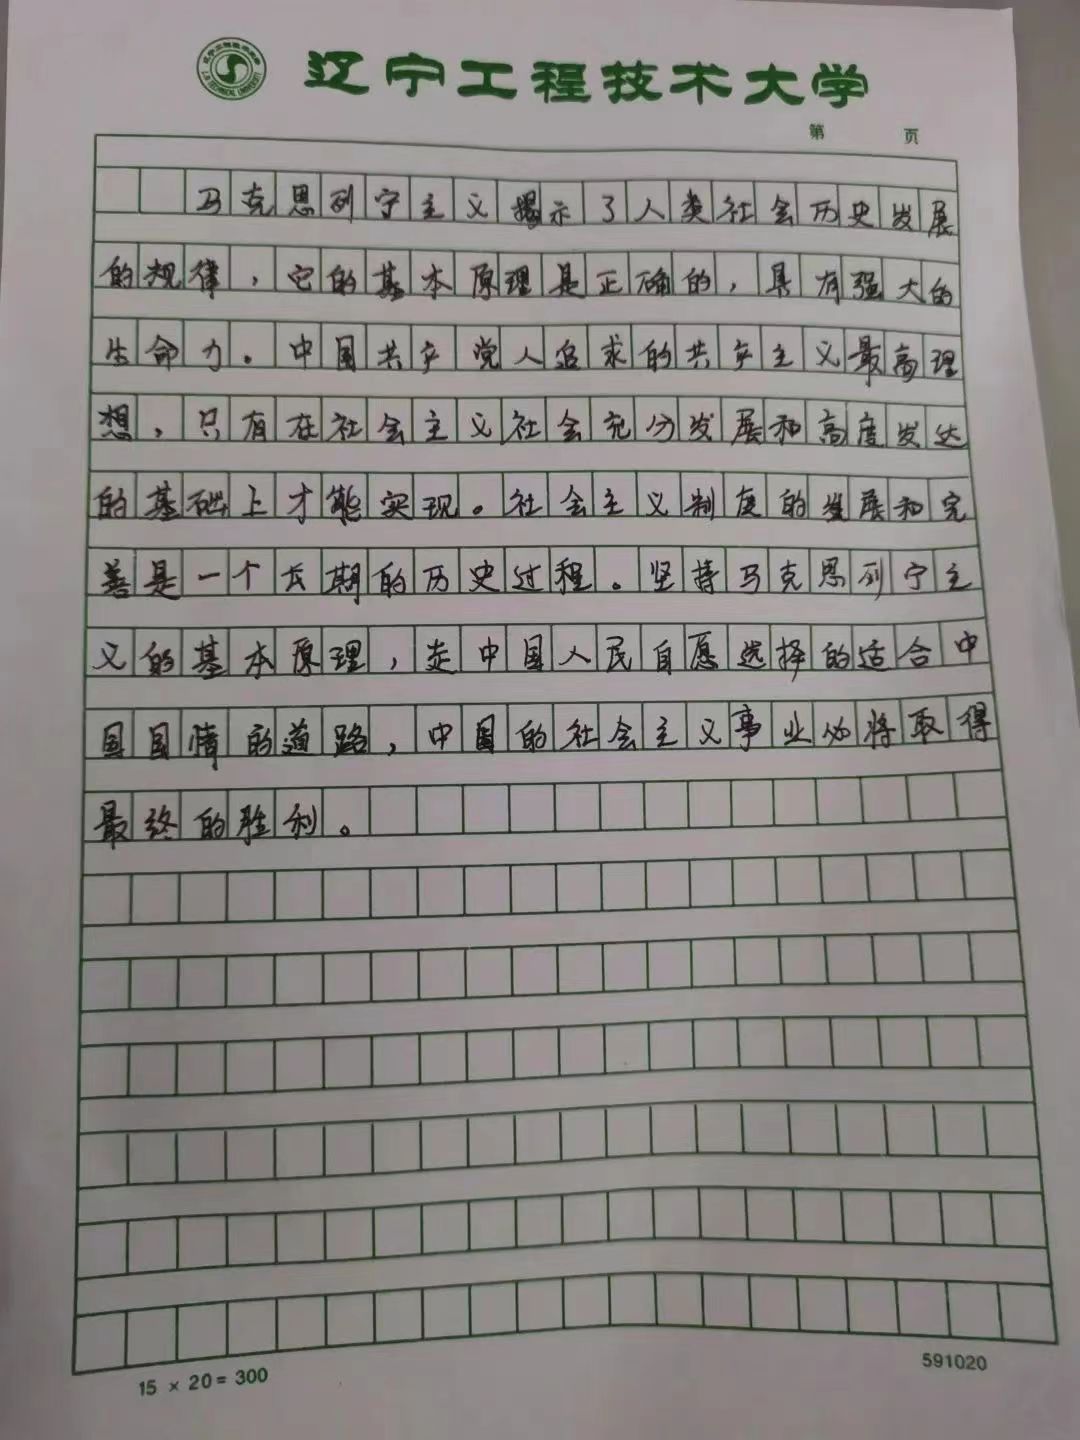 辽宁工程技术大学
第 页
马克思列宁主义揭示了人类社会历史发展
的规律，它的基本原理是正确的，具有强大的
生命力。中国共产党人追求的共产主义最高理
想，只有在社会主义社会充分发展和高度发达
的基础上才能实现。社会主义制度的发展和完
善是一个长期的历史过程。坚持马克思列宁主
义的基本原理，走中国人民自愿选择的适合中
国国情的道路，中国的社会主义事业必将取得
最终的胜利。
15 × 20 = 300
591020